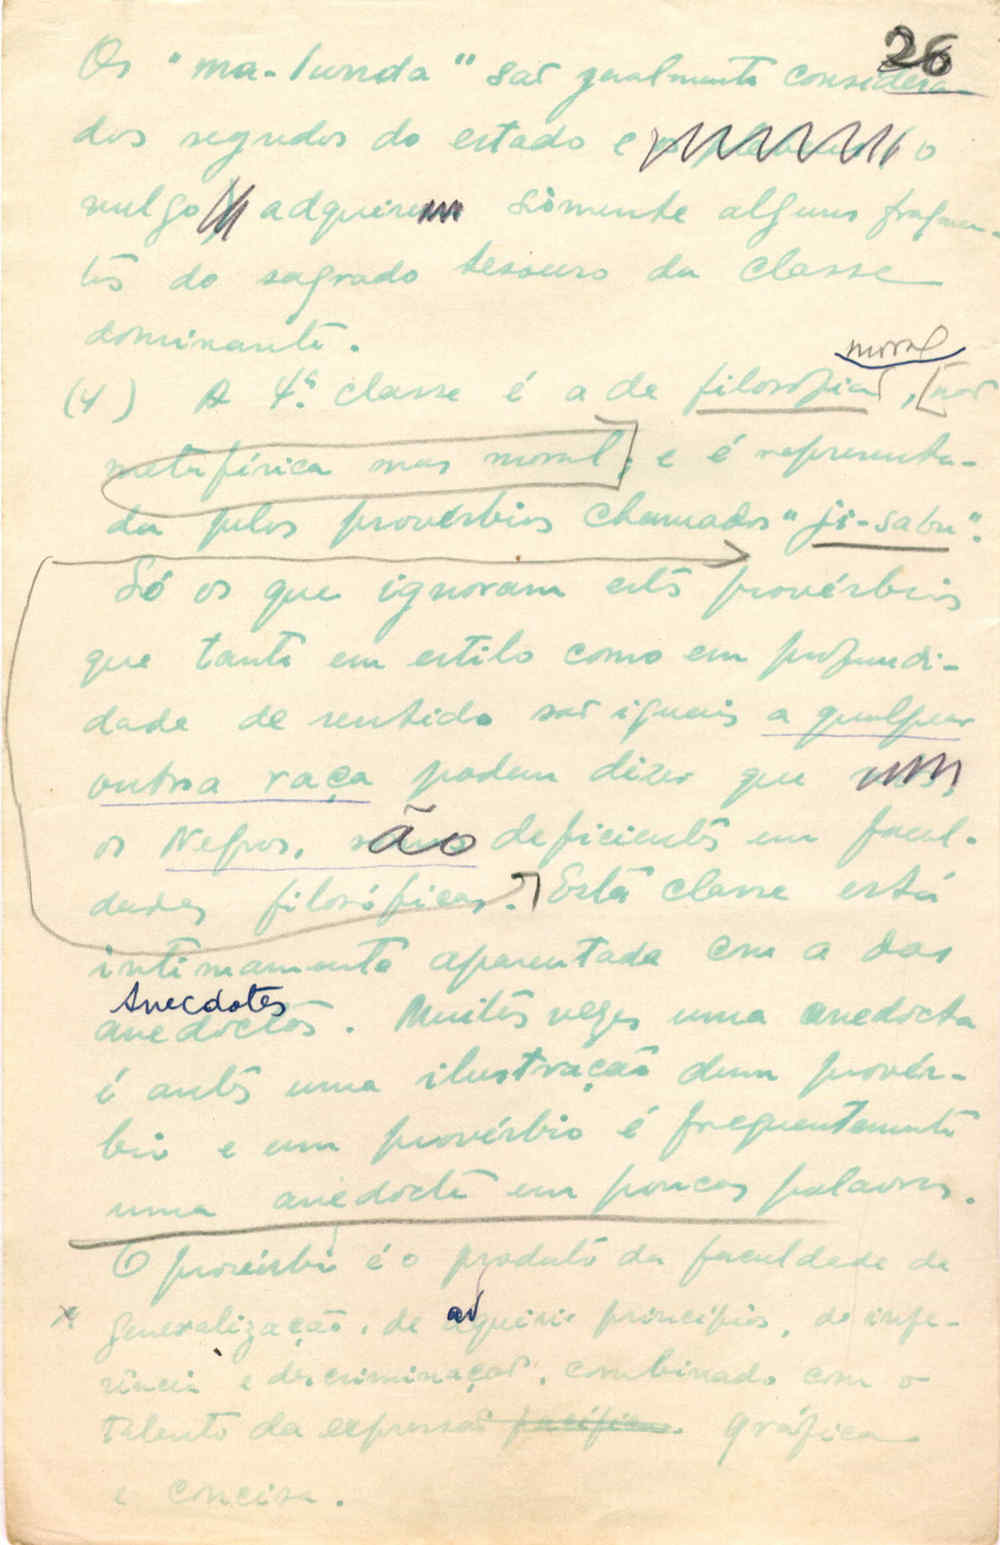 26
Os "ma-lunda" são geralmente considera
dos segredos do estado e o
vulgo adquire sòmente alguns fragmen-
tos do sagrado tesouro da classe
dominante.
moral
(4) A 4ª classe é a de filosofia, [não
metafísica mas moral, e é representa-
da pelos provérbios chamados "ji-sabu".
Só os que ignoram estes provérbios
que tanto em estilo como em profundi-
dade de sentido são iguais a qualquer
outra raça podem dizer que
os Negros, são deficientes em facul-
dades filosóficas. Esta classe está
intimamente aparentada com a das
Anecdotes
anedoctas. Muitas vezes uma anedocta
é antes uma ilustração dum provér-
bio e um provérbio é frequentemente
uma anedocta em poucas palavras.
O provérbio é o produto da faculdade de
generalização, de adquirir princípios, de infe-
rência e descriminação, combinado com o
talento da expressão gráfica
e concisa.